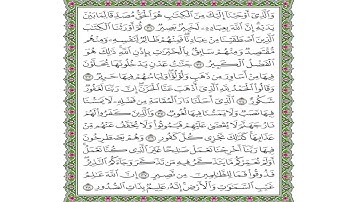 وَٱلَّذِىٓ أَوۡحَيۡنَآ إِلَيۡكَ مِنَ ٱلۡكِتَٰبِ هُوَ ٱلۡحَقُّ مُصَدِّقٗا لِّمَا بَيۡنَ
يَدَيۡهِۗ إِنَّ ٱللَّهَ بِعِبَادِهِۦ لَخَبِيرُۢ بَصِيرٞ ۝٣١ ثُمَّ أَوۡرَثۡنَا ٱلۡكِتَٰبَ
ٱلَّذِينَ ٱصۡطَفَيۡنَا مِنۡ عِبَادِنَاۖ فَمِنۡهُمۡ ظَالِمٞ لِّنَفۡسِهِۦ وَمِنۡهُم
مُّقۡتَصِدٞ وَمِنۡهُمۡ سَابِقُۢ بِٱلۡخَيۡرَٰتِ بِإِذۡنِ ٱللَّهِۚ ذَٰلِكَ هُوَ
ٱلۡفَضۡلُ ٱلۡكَبِيرُ ۝٣٢ جَنَّٰتُ عَدۡنٖ يَدۡخُلُونَهَا يُحَلَّوۡنَ
فِيهَا مِنۡ أَسَاوِرَ مِن ذَهَبٖ وَلُؤۡلُؤٗاۖ وَلِبَاسُهُمۡ فِيهَا حَرِيرٞ ۝٣٣
وَقَالُواْ ٱلۡحَمۡدُ لِلَّهِ ٱلَّذِىٓ أَذۡهَبَ عَنَّا ٱلۡحَزَنَۖ إِنَّ رَبَّنَا لَغَفُورٞ
شَكُورٌ ۝٣٤ ٱلَّذِىٓ أَحَلَّنَا دَارَ ٱلۡمُقَامَةِ مِن فَضۡلِهِۦ لَا يَمَسُّنَا
فِيهَا نَصَبٞ وَلَا يَمَسُّنَا فِيهَا لُغُوبٞ ۝٣٥ وَٱلَّذِينَ كَفَرُواْ لَهُمۡ نَارُ
جَهَنَّمَ لَا يُقۡضَىٰ عَلَيۡهِمۡ فَيَمُوتُواْ وَلَا يُخَفَّفُ عَنۡهُم مِّنۡ
عَذَابِهَاۚ كَذَٰلِكَ نَجۡزِى كُلَّ كَفُورٖ ۝٣٦ وَهُمۡ يَصۡطَرِخُونَ
فِيهَا رَبَّنَآ أَخۡرِجۡنَا نَعۡمَلۡ صَٰلِحًا غَيۡرَ ٱلَّذِى كُنَّا نَعۡمَلُۚ
أَوَلَمۡ نُعَمِّرۡكُم مَّا يَتَذَكَّرُ فِيهِ مَن تَذَكَّرَ وَجَآءَكُمُ ٱلنَّذِيرُۖ
فَذُوقُواْ فَمَا لِلظَّٰلِمِينَ مِن نَّصِيرٍ ۝٣٧ إِنَّ ٱللَّهَ عَٰلِمُ
غَيۡبِ ٱلسَّمَٰوَٰتِ وَٱلۡأَرۡضِۚ إِنَّهُۥ عَلِيمُۢ بِذَاتِ ٱلصُّدُورِ ۝٣٨